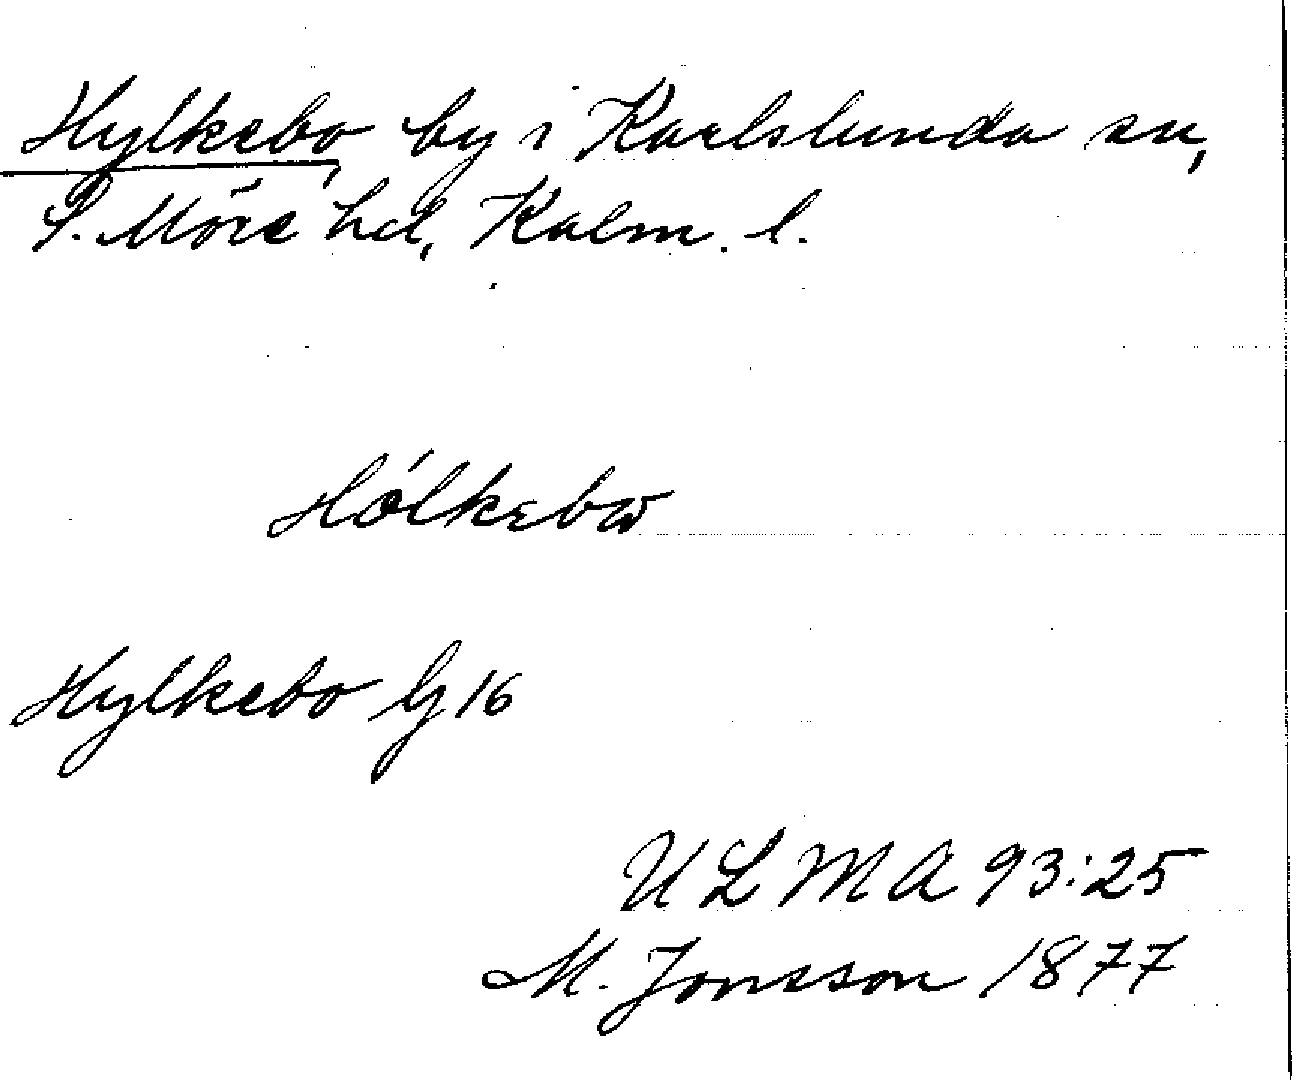 Hylkebo, by i Karlslunda sn,
S. Möre hd, Kalm. l.
Hólkebω
Hylkebo G 16
ULMA 93:25
M. Jonsson 1877